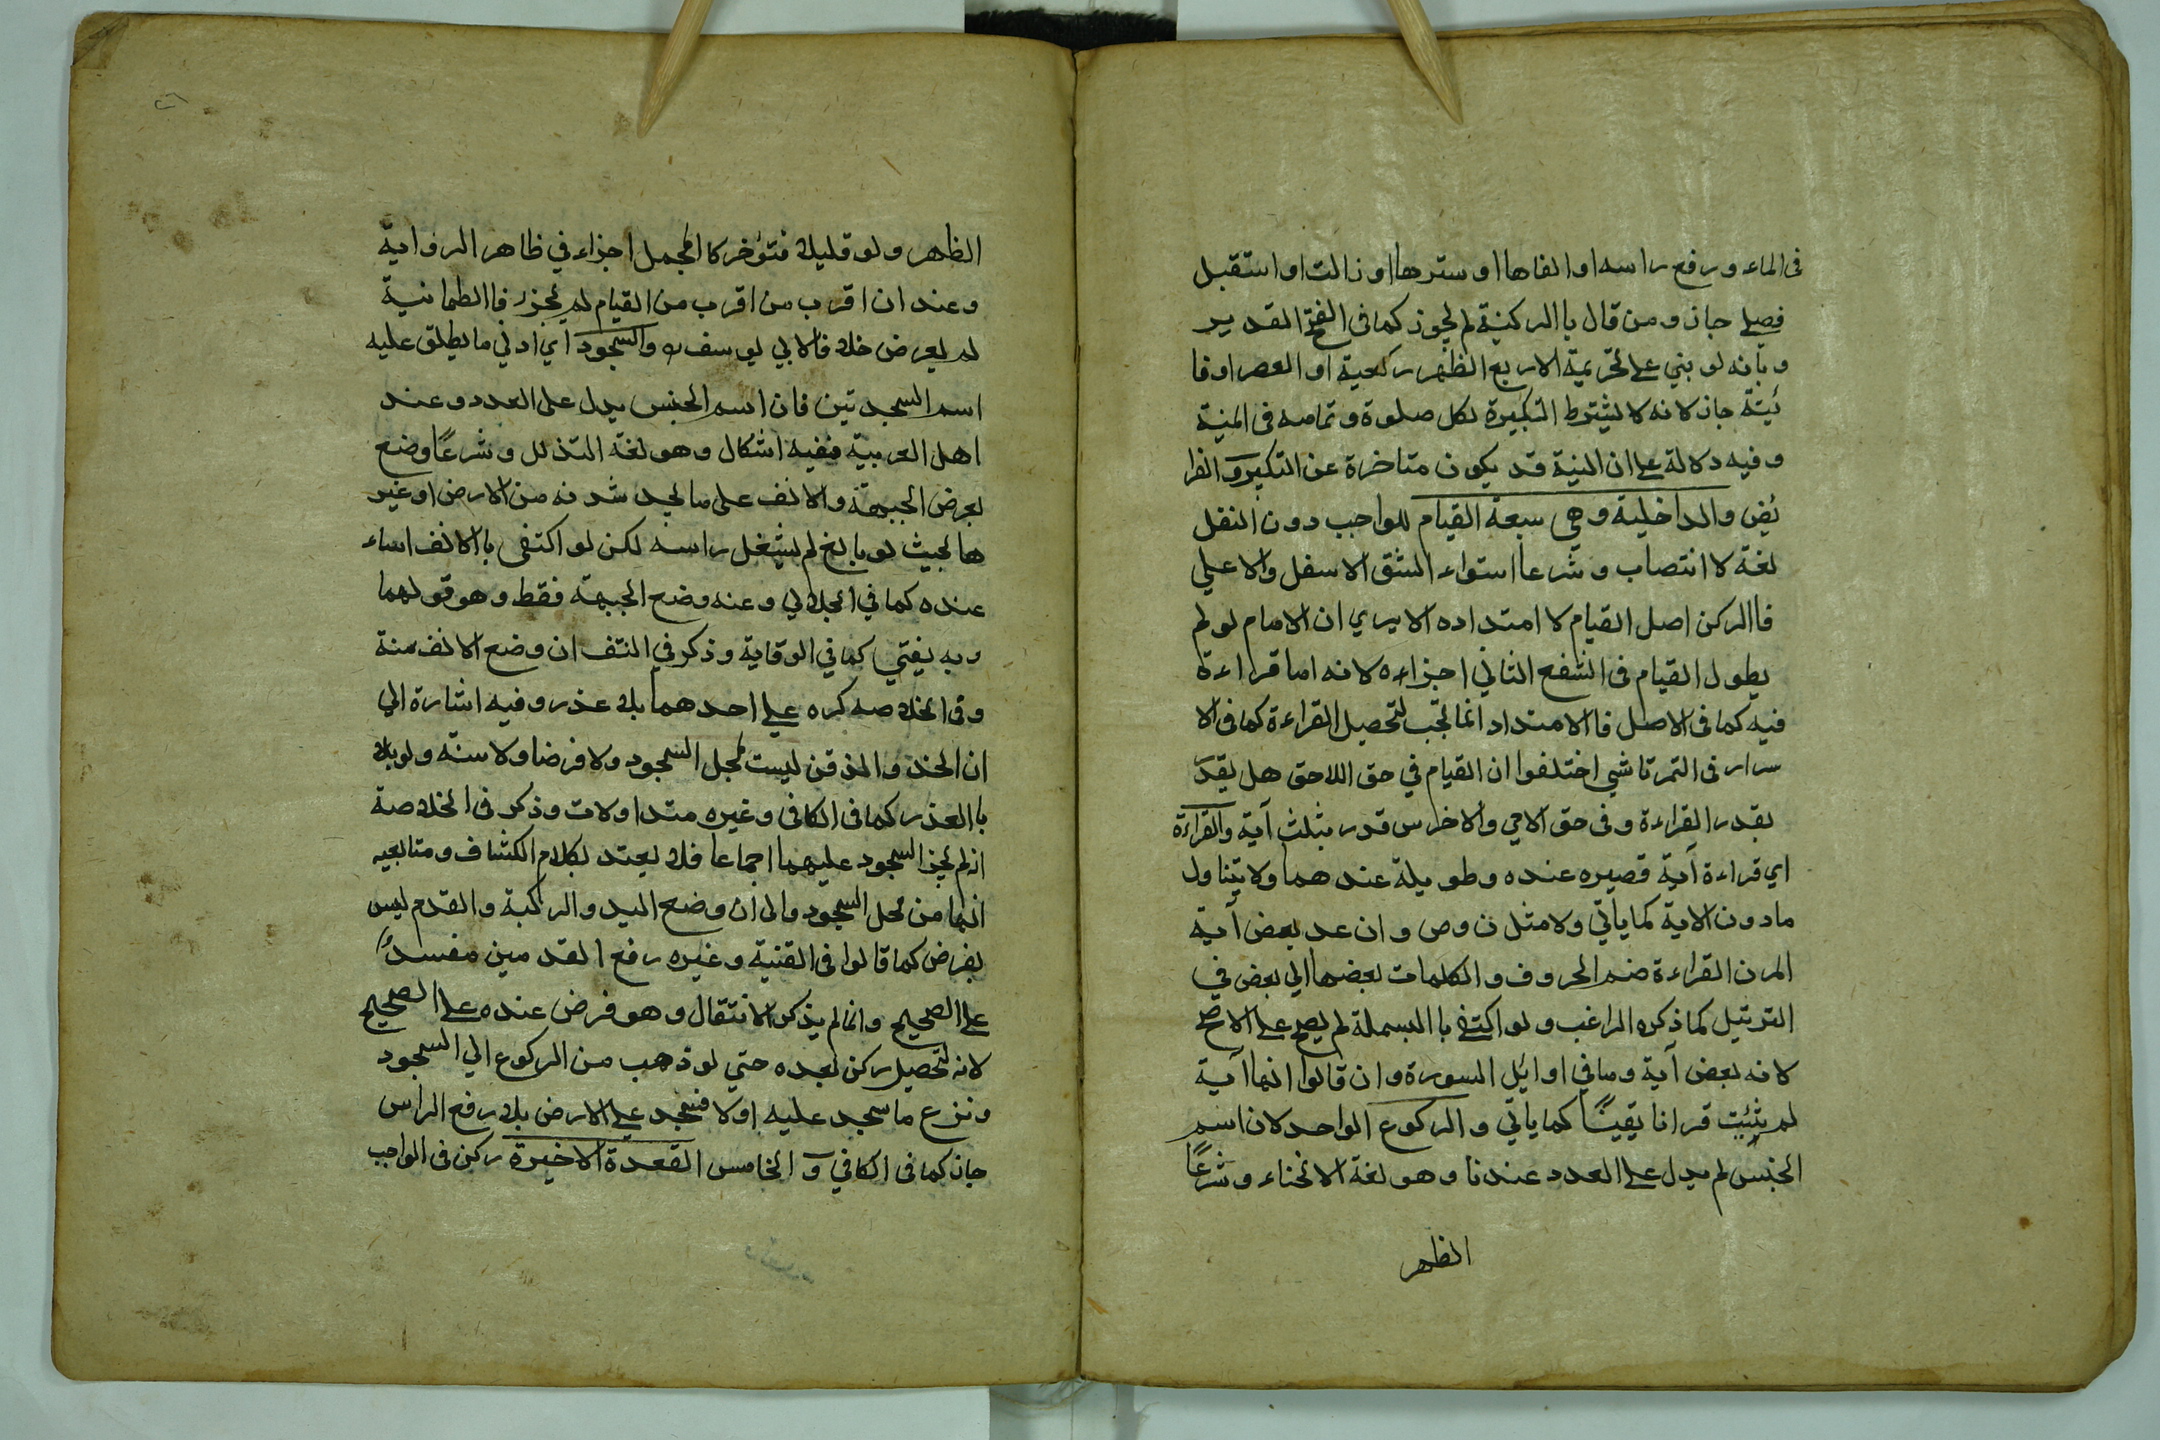 فى الماء ورفع راسه او القاها او سترها او زالت او استقبل
فصلى جاز ومن قال باالركنية لم يجوز كما فى الفتح القدير
وبانه لو بني على تحريمة الاربع الظهر ركعية او العصر او فا
ئتة جاز لانه لا يشترط التكبيرة لكل صلوة وتمامه فى المنية
وفيه دلالة على ان النية قد يكون متاخرة عن التكبير و الفرا
ئض والداخلية وهي سبعة القيام للواجب دون النفل
لغة لا انتصاب وشرعا استواء الشق الاسفل والاعلي
فاالركن اصل القيام لا امتداده الا يري ان الامام لو لم
يطول القيام فى الشفع الثاني اجزاءه لانه اما قراءة
فيه كما فى الاصل فاالامتداد انما تجب لتحصيل القراءة كما فى الا
سرار فى التمرتاشي اختلفوا ان القيام في حق اللاحق هل يقدر
بقدر القراءة وفى حق الامي والاخرس قدر بثلث آية والقراءة
اي قراءة آية قصيره عنده وطويلة عندهما ولا يتناول
مادون الاية كما ياتي ولا مثل ن وص وان عد بعض آية
المرن القراءة ضم الحروف والكلمات بعضها الي بعض في
الترتيل كما ذكره الراغب ولو اكتفى باالبسملة لم يصح على الاصح
لانه بعض آية وما في اوائل السورة وان قالوا انها آية
لم يثبت قرانا يقينًا كما ياتي و الركوع الواحد لان اسم
الجنس لم يدل على العدد عندنا وهو لغة الانحناء وشرعًا
الظهر
الظهر ولو قليلا فتؤخر كا لجمل اجزاء في ظاهر الروايةّ
وعند ان اقرب من اقرب من القيام لم يجز فاالطمانية
لم يعرض خلافا لابي يوسف رہ والسجود اي ادني ما يطلق عليه
اسم السجدتين فان اسم الجنس يدل على العدد وعند
اهل العربية ففيه اشكال وهو لغة التذلل وشرعًا وضع
بعرض الجبهة والانف على ما يجد شدنه من الارض او غير
ها بحيث لو بالغ لم يتسفل راسه لكن لو اكتفى باالانف اساء
عنده كما في الجلالي وعنه وضع الجبهة فقط وهو قولهما
وبه يفتي كما في الوقاية وذكر في النتف ان وضع الانف سنة
وفى الخلاصه كره على احدهما بلا عذر وفيه اشارة الي
ان الخد والذقن ليست بمحل السجود ولا فرضا ولا سنّة ولو بلا
باالعذر كما فى الكافى وغيره متداولات وذكر فى الخلاصة
انه لم يجز السجود عليهما اجماعا فلا يعتد بكلام الكشاف ومتابعيه
انها من محل السجود والى ان وضع اليد والركبة والقدم ليس
بفرض كما قالوا فى القنية وغيره رفع القدمين مفسدٌ
على الصحيح وانما لم يذكر الانتقال وهو فرض عنده على الصحيح
لانه لتحصيل ركن بعده حتي لو ذهب من الركوع الي السجود
ونزع ما سجد عليه اولا فسجد على الارض بلا رفع الراس
جاز كما فى الكافي و الخامس القعدة الاخيرة ركن فى الواجب